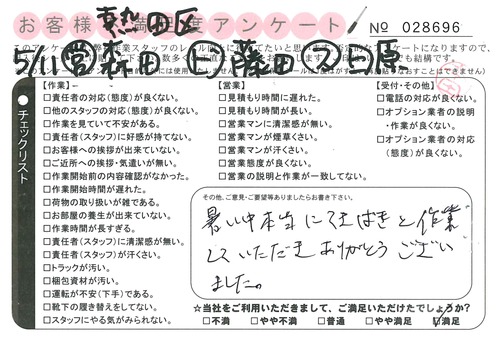 お客様満足度アンケート
熱田区
No 028696
5/1 営森田 ㋣藤田 ㋜三原
チェックリスト
【作業】
□責任者の対応(態度)が良くない。
□他のスタッフの対応(態度)が良くない。
□作業を見ていて不安がある。
□責任者(スタッフ)に好感が持てない。
□お客様への挨拶が出来ていない。
□ご近所への挨拶・気遣いが無い。
□作業開始前の内容確認がなかった。
□作業開始時間が遅れた。
□荷物の取り扱いが雑である。
□お部屋の養生が出来ていない。
□作業時間が長すぎる。
□責任者(スタッフ)に清潔感が無い。
□責任者(スタッフ)が汗くさい。
□トラックが汚い。
□梱包資材が汚い。
□運転が不安(下手)である。
□靴下の履き替えをしてない。
□スタッフにやる気がみられない。
【営業】
□見積もり時間に遅れた。
□見積もり時間が長い。
□営業マンに清潔感が無い。
□営業マンが煙草くさい。
□営業マンが汗くさい。
□営業態度が良くない。
□営業の説明と作業が一致してない。
【受付・その他】
□電話の対応が良くない。
□オプション業者の説明
・作業が良くない。
□オプション業者の対応
(態度)が良くない。
その他、ご意見・ご要望等ありましたらお書き下さい。
暑い中本当にてきぱきと作業
していただきありがとうござい
ました。
☆当社をご利用いただきまして、ご満足いただけたでしょうか?
□不満 □やや不満 □普通 □やや満足 □満足